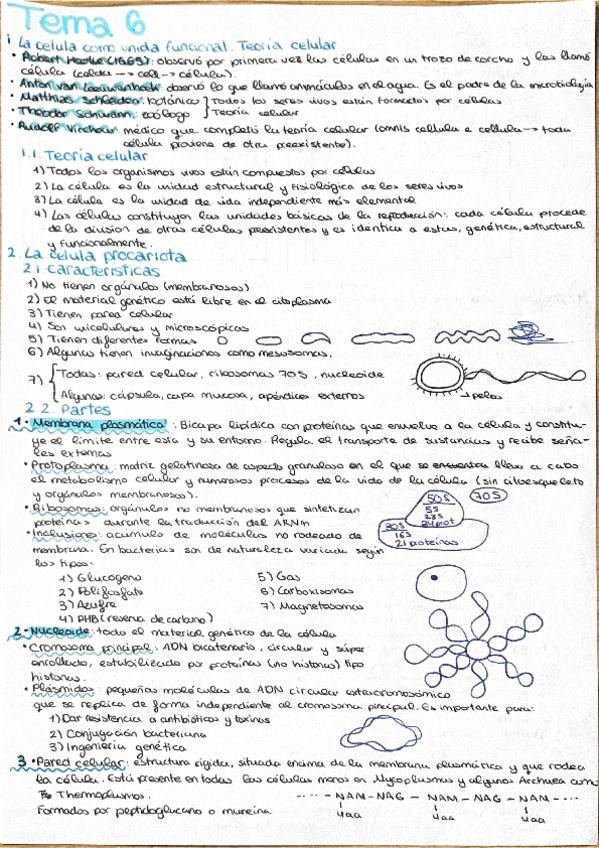 Tema 6
1 La celula como unida funcional. Teoria celular
• Robert Hooke (1665): observó por primera vez las células en un trozo de corcho y las llamó
célula (celda --> cell --> célula).
• Anton van Leeuwenhoek observó lo que llamó animáculos en el agua. Es el padre de la microbiología
• Matthias Schleiden: botánico } Todos los seres vivos están formados por células
• Theodor Schwann: zoólogo } Teoría celular
• Rudolf Virchow médico que completó la teoría celular (omnis cellula e cellula --> toda
célula proviene de otra preexistente).
1.1. Teoría celular
1) Todos los organismos vivos están compuestos por células
2) La célula es la unidad estructural y fisiológica de los seres vivos
3) La célula es la unidad de vida independiente más elemental
4) Las células constituyen las unidades básicas de la reproducción: cada célula procede
de la división de otras células preexistentes y es idéntica a estas, genética, estructural
y funcionalmente.
2. La célula procariota
2.1 Características
1) No tienen orgánulos (membranosos)
2) El material genético está libre en el citoplasma
3) Tienen pared celular
4) Son unicelulares y microscópicas
5) Tienen diferentes formas
6) Algunas tienen invaginaciones como mesosomas.
7) { Todas: pared celular, ribosomas 70S, nucleoide
Algunas: cápsula, capa mucosa, apéndices externos
pelos
2.2. Partes
1. • Membrana plasmática: Bicapa lipídica con proteínas que envuelve a la célula y constitu-
ye el límite entre esta y su entorno. Regula el transporte de sustancias y recibe seña-
les externas
• Protoplasma: matriz gelatinosa de aspecto granuloso en el que se encuentran lleva a cabo
el metabolismo celular y numerosos procesos de la vida de la célula (sin citoesqueleto
y orgánulos membranosos).
• Ribosomas: orgánulos no membranosos que sintetizan
proteínas durante la traducción del ARNm
50S 70S
5S
23S
34 prot
30S
16S
21 proteínas
• Inclusiones: acumulo de moléculas no rodeado de
membrana. En bacterias son de naturaleza variada según
los tipos:
1) Glucógeno 5) Gas
2) Polifosfato 6) Carboxisomas
3) Azufre 7) Magnetosomas
4) PHB (reserva de carbono)
2. • Nucleoide: todo el material genético de la célula
• Cromosoma principal: ADN bicatenario, circular y súper
enrollado, estabilizado por proteínas (no histonas) tipo
histonas.
• Plásmidos: pequeñas moléculas de ADN circular extracromosómico
que se replica de forma independiente al cromosoma principal. Es importante para:
1) Dar resistencia a antibióticos y toxinas
2) Conjugación bacteriana
3) Ingeniería genética
3 • Pared celular: estructura rígida, situada encima de la membrana plasmática y que rodea
la célula. Está presente en todas las células menos en Mycoplasmas y algunos Archaea como
Thermoplasmas.
Formados por peptidoglucano o mureína
---- NAM-NAG - NAM - NAG - NAM - ---
4aa 4aa 4aa